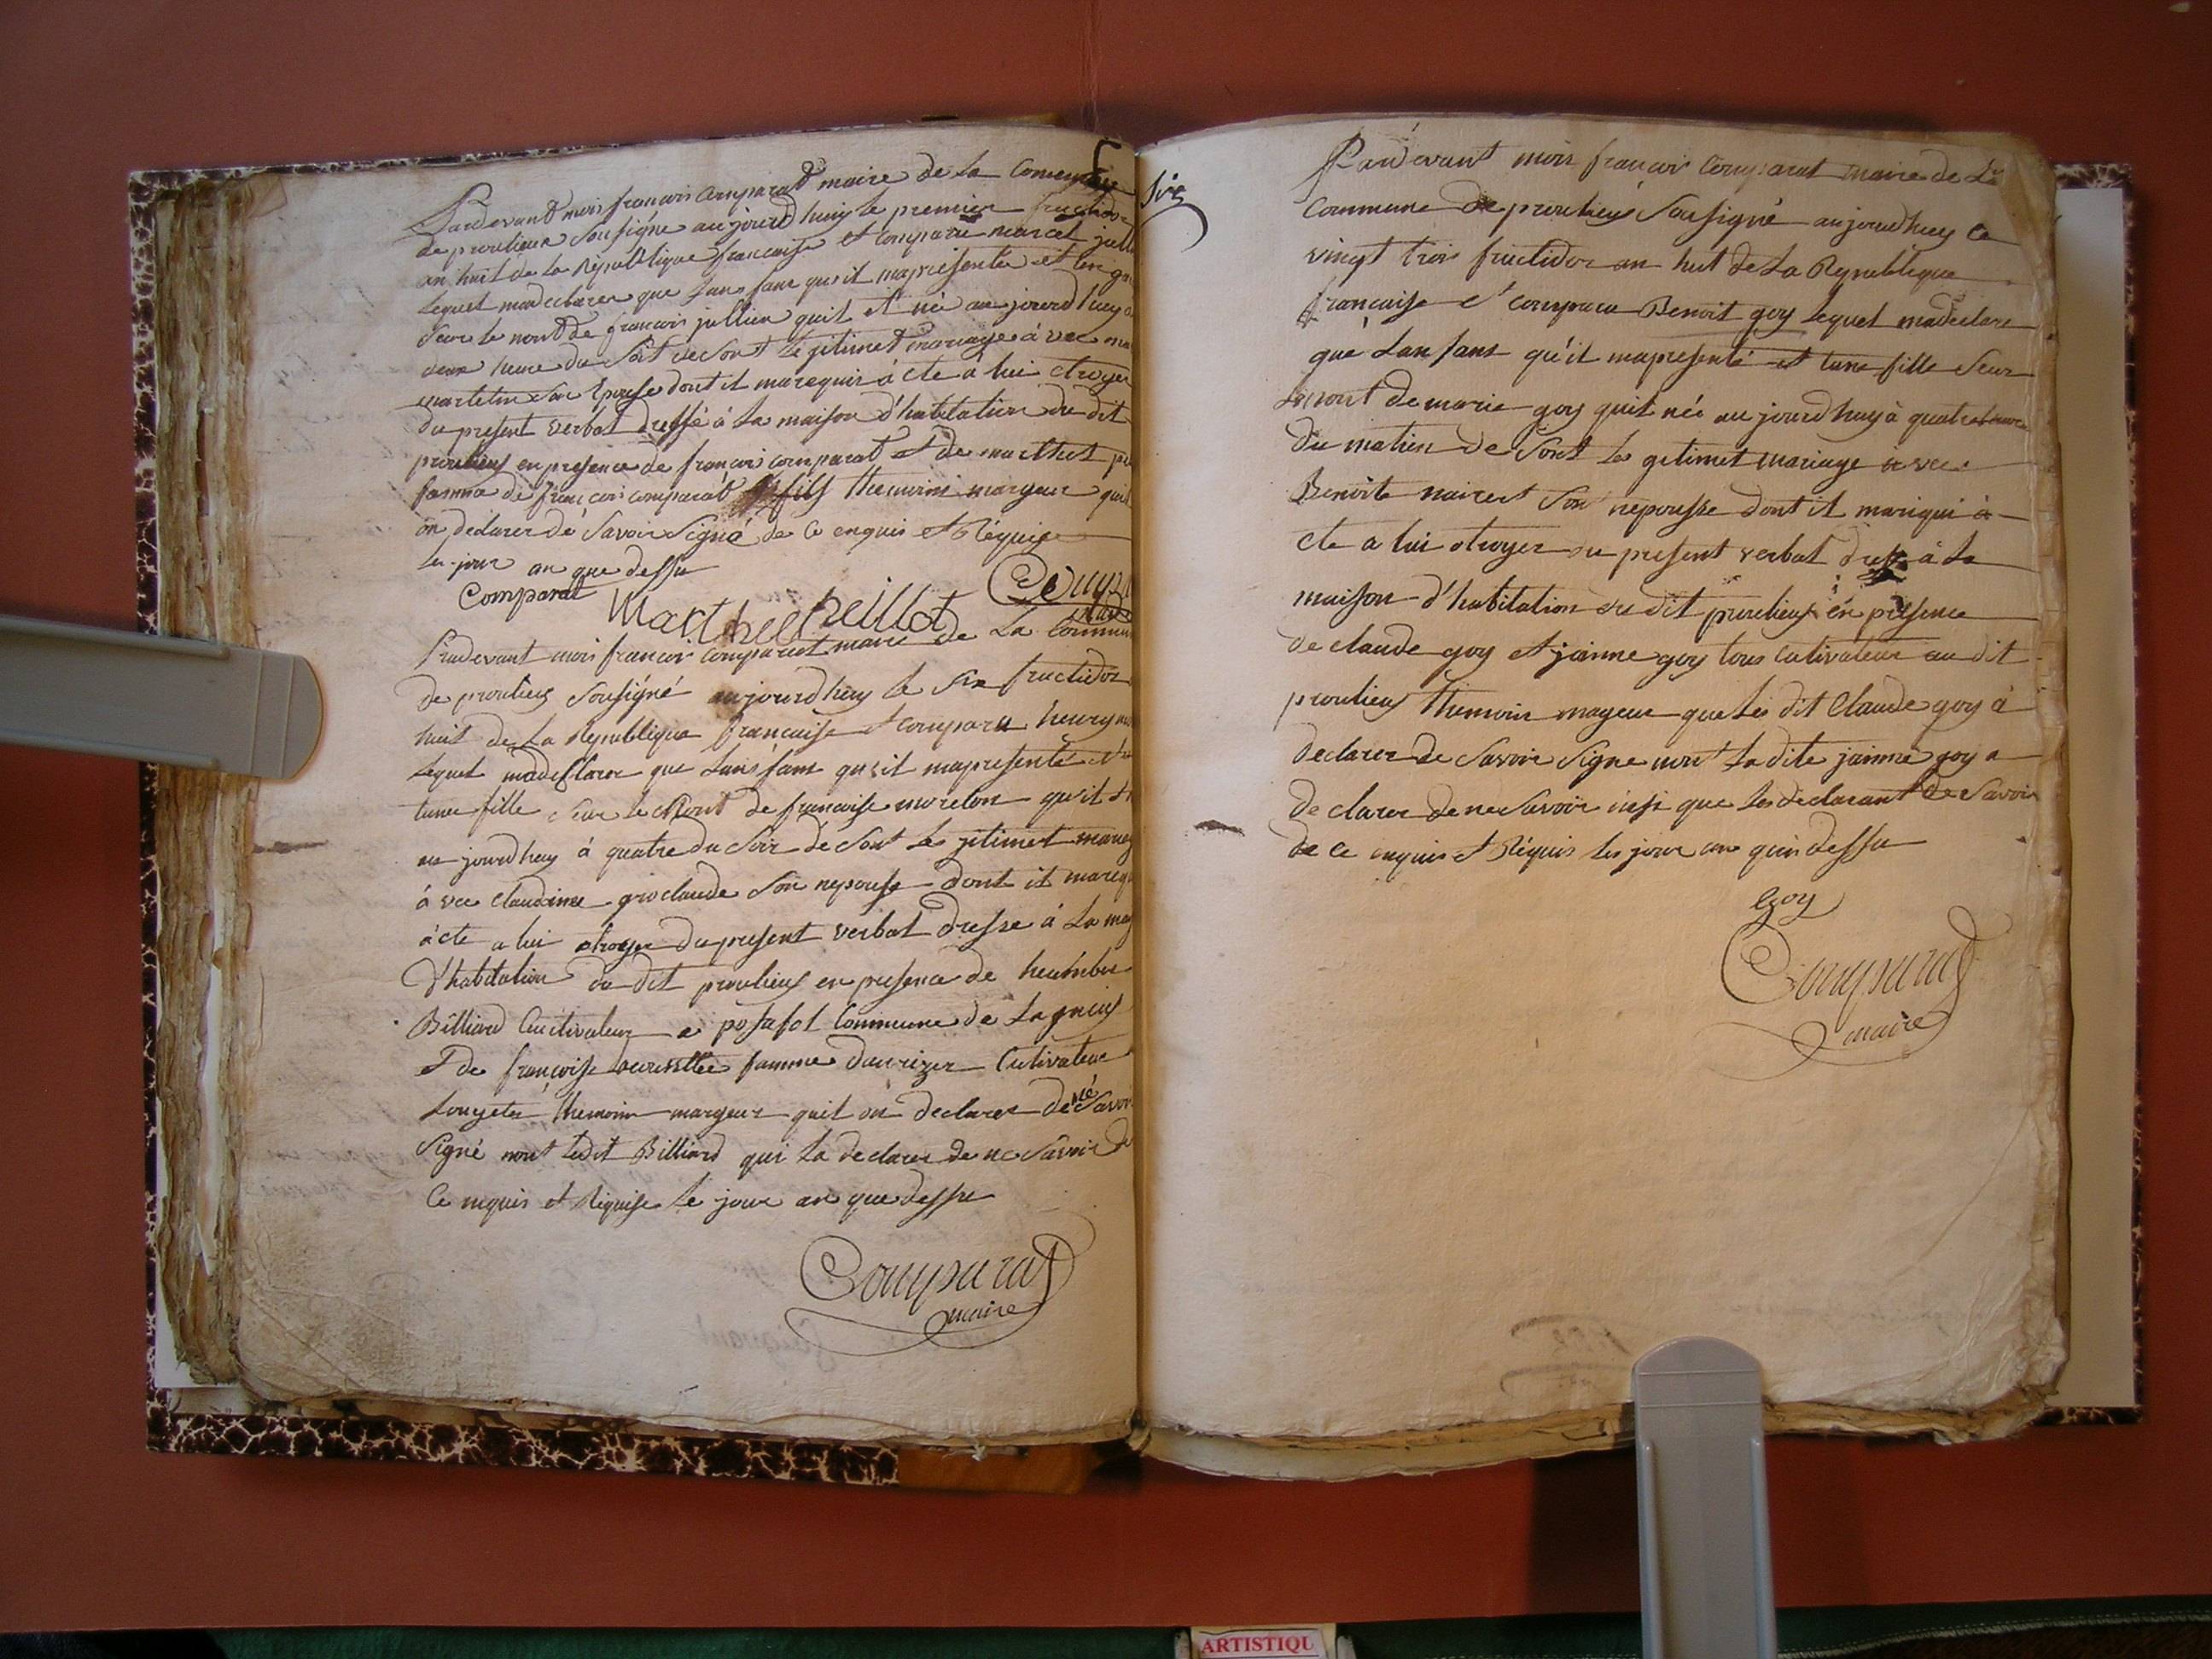 Pardevant mois francois Comparat maire de La Commune
de proulieux Sousigné aujourd huy le premier fructidor
an huit de La République francaise et Comparu marcel jull
Lequel madeclarer que Lans fans qu'il mapresenter et t'un ga
Seur le nont de francois jullien quit et né au jourd huy a
heure du Soit de Sont Le gitimet mariage à vec ma
Son Epouse dont it marequis a cte a lui otroyer
du present verbat dressé à La maison d'habitation du dit
proulieux en presence de francois comparat et de marthet
famma de francois comparat fils themoins margeur quit
on declarer dé Savoir Signé de Ce enquis et Réquise
Les jour an que dessu
Comparat
Marthe peillot
Comp
maire
Pradevant mois francois Comparat maire de La Commun
de proulieux Sousigné aujourd huy le Six fructidor
huit de La Republique francaise et Comparu henry
Lequel madesclarer que Lans fans qu'it mapresenté et
tune fille Seur Le Nont de francoise morelon qu'it et
au jourd huy à quatre du Soir dé Sont Le gitimet mariag
à vec Claudine groclaude Son nepouse dont it marequ
àcte a lui otroyer du present verbat dresse à La mai
d'habitation du dit proulieux en presence de heumber
Billiard Cultivateur a posafol Commune de Lagnieux
et de françoise famme Cultivateur
themoin margeur quit on declarer de né Savoir
Signé nont ledit Billiard qui La declarer de ne Savoir de
Ce nquis et Riquise Le jour an que dessu
Comparat
maire
Six
Pardevant mois francois Comparat maire de La
Commune de proulieux Sousigné aujourd huy Ce
vingt trois fructidor an huit de La Republique
francaise et Comparu Benoit goy Lequel madeclare
que Lan fans qu'it mapresenté et tune fille Seur
Le nont de marie goy quit née au jourd huy à quatre heure
du matien de Sont Le gitimet mariage à vec
Benoite Son nepousse dont it mariqui à
cte a lui otroyer du present verbat dresse à La
maison d'habitation du dit proulieux en presence
de claude goy et jeanne goy tous Cutivateur au dit
proulieux themoin mageur que Les dit Claude goy à
declarer de Savoir Signe nont La dite jeanne goy a
declarer de ne Savoir insi que Les declarant de Savoir
de Ce enquis et Réquis Les jour an qu'en dessu
Goy
Comparat
maire
ARTISTIQU